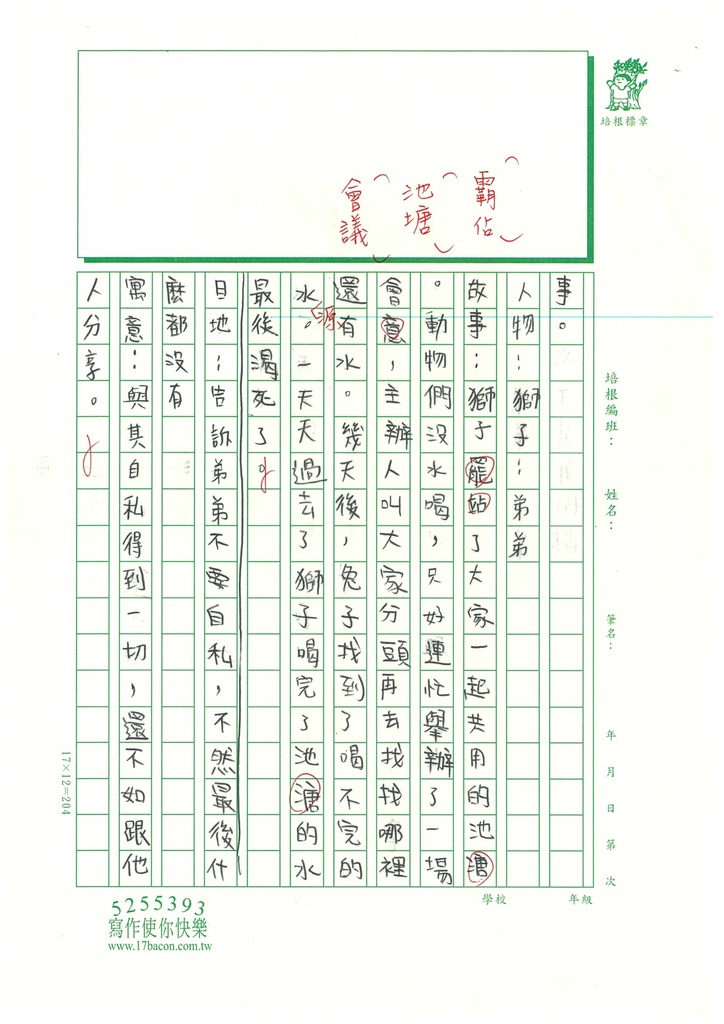 霸佔
池塘
會議
培根標章
事。
人物：獅子：弟弟
故事：獅子罷站了大家一起共用的池溏
。動物們沒水喝，只好連忙舉辦了一場
會意，主辦人叫大家分頭再去找找哪裡
還有水。幾天後，兔子找到了喝不完的
水源。一天天過去了獅子喝完了池溏的水
最後渴死了。
目地：告訴弟弟不要自私，不然最後什
麼都沒有
寓意：與其自私得到一切，還不如跟他
人分享。
培根編班：
姓名：
筆名：
年 月 日 第 次
學校
年級
17×12=204
5255393
寫作使你快樂
www.17bacon.com.tw